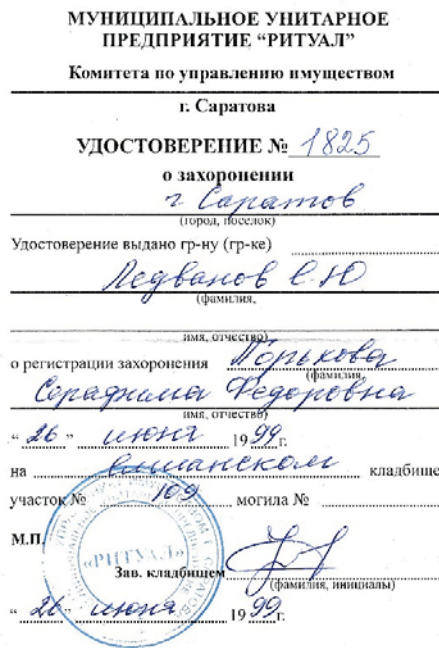 МУНИЦИПАЛЬНОЕ УНИТАРНОЕ
ПРЕДПРИЯТИЕ “РИТУАЛ”
Комитета по управлению имуществом
г. Саратова
УДОСТОВЕРЕНИЕ № 1825
о захоронении
г Саратов
(город, поселок)
Удостоверение выдано гр-ну (гр-ке)
Ледванов С.Ю
(фамилия,
имя, отчество)
о регистрации захоронения Горькова
(фамилия,
Серафима Федоровна
имя, отчество)
“ 26 ” июня 19 99 г.
на кладбище
участок № 109 могила №
М.П.
«РИТУАЛ»
Зав. кладбищем
(фамилия, инициалы)
“ 26 ” июня 19 99 г.